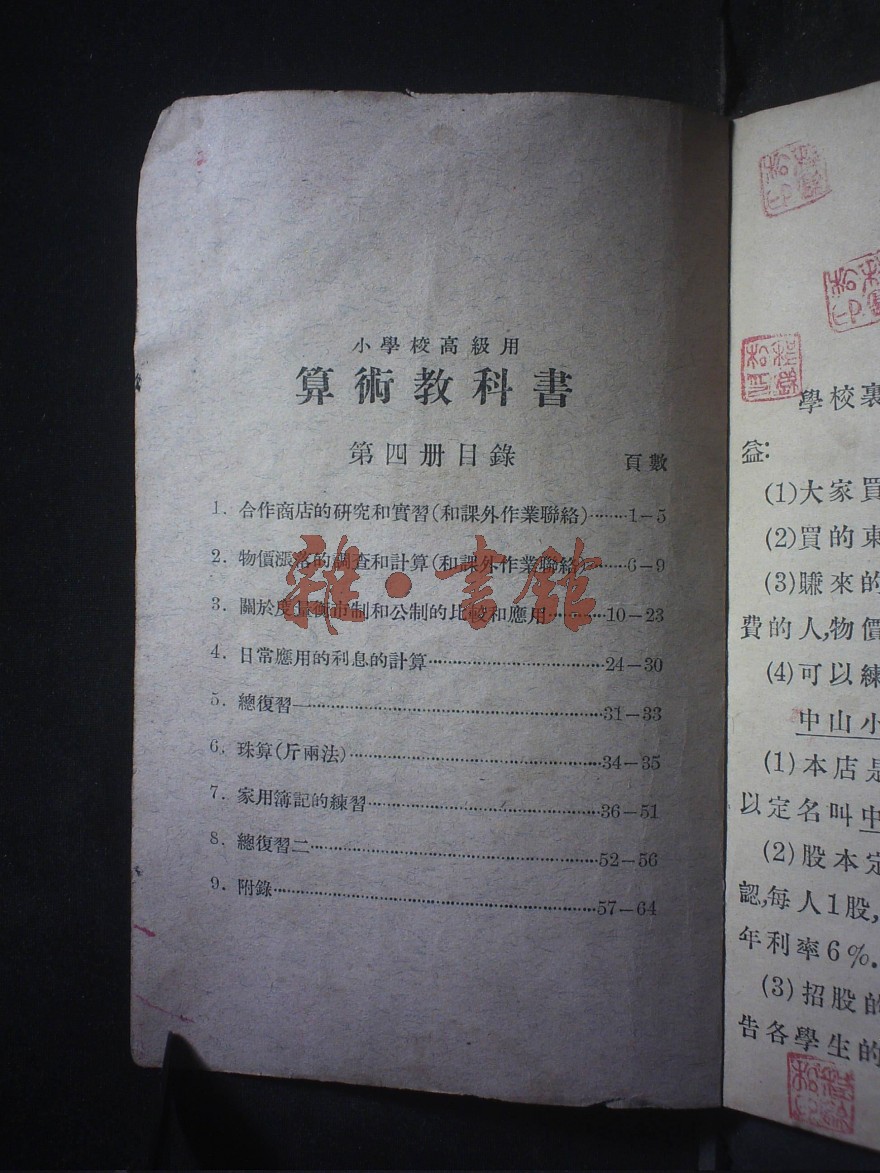 小學校高級用
算術教科書
第四册目錄
頁數
1. 合作商店的研究和實習(和課外作業聯絡)········1—5
2. 物價漲落的調查和計算(和課外作業聯絡)·······6—9
3. 關於度量衡市制和公制的比較和應用············10—23
4. 日常應用的利息的計算·······························24—30
5. 總復習一·······················································31—33
6. 珠算(斤兩法)················································34—35
7. 家用簿記的練習··········································36—51
8. 總復習二······················································52—56
9. 附錄····························································57—64
雜·書館
學校裏
益:
(1)大家買
(2)買的東
(3)賺來的
費的人,物價
(4)可以練
中山小
(1)本店是
以定名叫中
(2)股本定
認,每人1股,
年利率6%.
(3)招股的
告各學生的